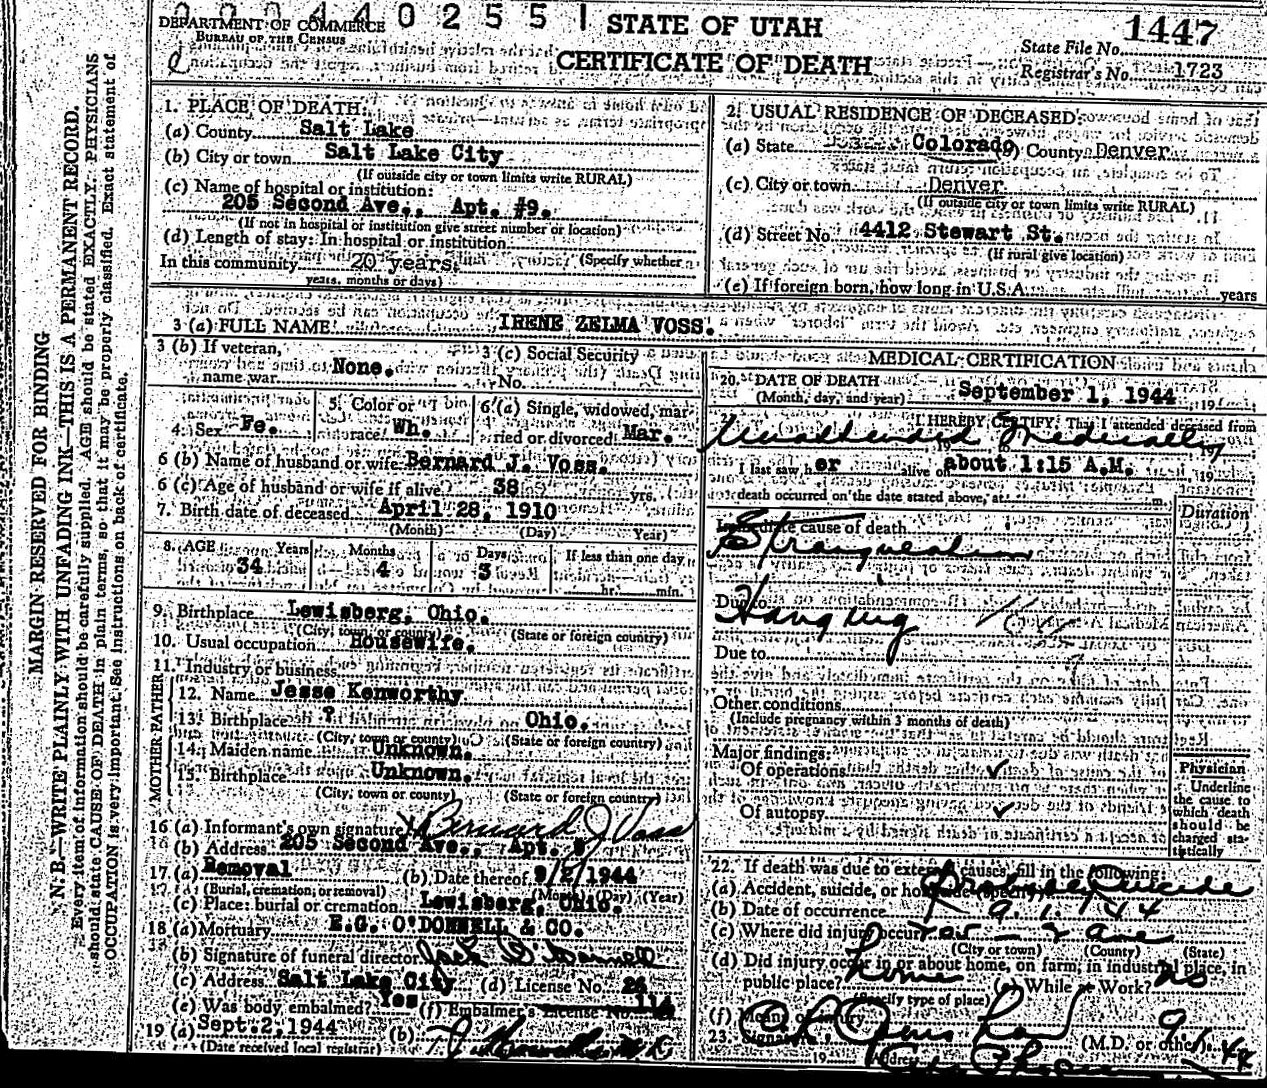 00 4402551
DEPARTMENT OF COMMERCE
BUREAU OF THE CENSUS
STATE OF UTAH
CERTIFICATE OF DEATH
1447
State File No.
Registrar's No. 1723
MARGIN RESERVED FOR BINDING
N. B.—WRITE PLAINLY WITH UNFADING INK—THIS IS A PERMANENT RECORD.
Every item of information should be carefully supplied. AGE should be stated EXACTLY. PHYSICIANS
should state CAUSE OF DEATH in plain terms, so that it may be properly classified. Exact statement of
OCCUPATION is very important. See instructions on back of certificate.
1. PLACE OF DEATH:
(a) County Salt Lake
(b) City or town Salt Lake City
(If outside city or town limits write RURAL)
(c) Name of hospital or institution:
205 Second Ave., Apt. #9.
(If not in hospital or institution give street number or location)
(d) Length of stay: In hospital or institution
In this community 20 years. (Specify whether
years, months or days)
2. USUAL RESIDENCE OF DECEASED:
(a) State Colorado (b) County Denver
(c) City or town Denver
(If outside city or town limits write RURAL)
(d) Street No. 4412 Stewart St.
(If rural give location)
(e) If foreign born, how long in U.S.A. years
3 (a) FULL NAME IRENE ZELMA VOSS.
3 (b) If veteran,
name war None.
3 (c) Social Security
No.
4. Sex Fe.
5. Color or
race Wh.
6 (a) Single, widowed, mar-
ried or divorced Mar.
6 (b) Name of husband or wife Bernard J. Voss.
6 (c) Age of husband or wife if alive 38 yrs.
7. Birth date of deceased April 28, 1910
(Month) (Day) Year)
8. AGE Years Months Days If less than one day
34 4 3 hr. min.
9. Birthplace Lewisberg, Ohio.
(City, town or county) (State or foreign country)
10. Usual occupation Housewife.
11. Industry or business
FATHER
12. Name Jesse Kenworthy
13. Birthplace ? Ohio.
(City, town or county) (State or foreign country)
MOTHER
14. Maiden name Unknown.
15. Birthplace Unknown.
(City, town or county) (State or foreign country)
16 (a) Informant's own signature Bernard J Voss
(b) Address 205 Second Ave., Apt. 9
17. (a) Removal (b) Date thereof 9/2/1944
(Burial, cremation, or removal) (Month) (Day) (Year)
(c) Place: burial or cremation Lewisberg, Ohio.
18 (a) Mortuary E.G. O'DONNELL & CO.
(b) Signature of funeral director Jack O'Donnell
(c) Address Salt Lake City (d) License No. 26
(e) Was body embalmed? Yes (f) Embalmer's License No. 114
19 (a) Sept. 2, 1944 (b)
(Date received local registrar)
MEDICAL CERTIFICATION
20. DATE OF DEATH September 1, 1944
(Month, day, and year)
I HEREBY CERTIFY: That I attended deceased from
Unattended Medically
19
I last saw her alive on about 1:15 A.M. 19
death occurred on the date stated above, at m.
Duration
Immediate cause of death
Strangulation
Due to
Hanging
Due to
Other conditions
(Include pregnancy within 3 months of death)
Major findings:
Of operations ✓
Of autopsy ✓
Physician
Underline
the cause to
which death
should be
charged sta-
tistically
22. If death was due to external causes, fill in the following:
(a) Accident, suicide, or homicide Probably Suicide
(b) Date of occurrence 9. 1. 44
(c) Where did injury occur 205 - 2 ave
(City or town) (County) (State)
(d) Did injury occur in or about home, on farm, in industrial place, in
public place? home (e) While at Work? no
(Specify type of place)
(f) Means of injury
23. Signature
(M.D. or other)
19 Address